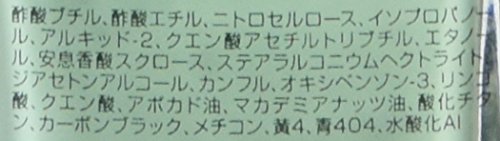 酢酸ブチル、酢酸エチル、ニトロセルロース、イソプロパノー
ル、アルキッド-2、クエン酸アセチルトリブチル、エタノー
ル、安息香酸スクロース、ステアラルコニウムヘクトライト、
ジアセトンアルコール、カンフル、オキシベンゾン-3、リンゴ
酸、クエン酸、アボカド油、マカデミアナッツ油、酸化チタ
ン、カーボンブラック、メチコン、黄4、青404、水酸化Al